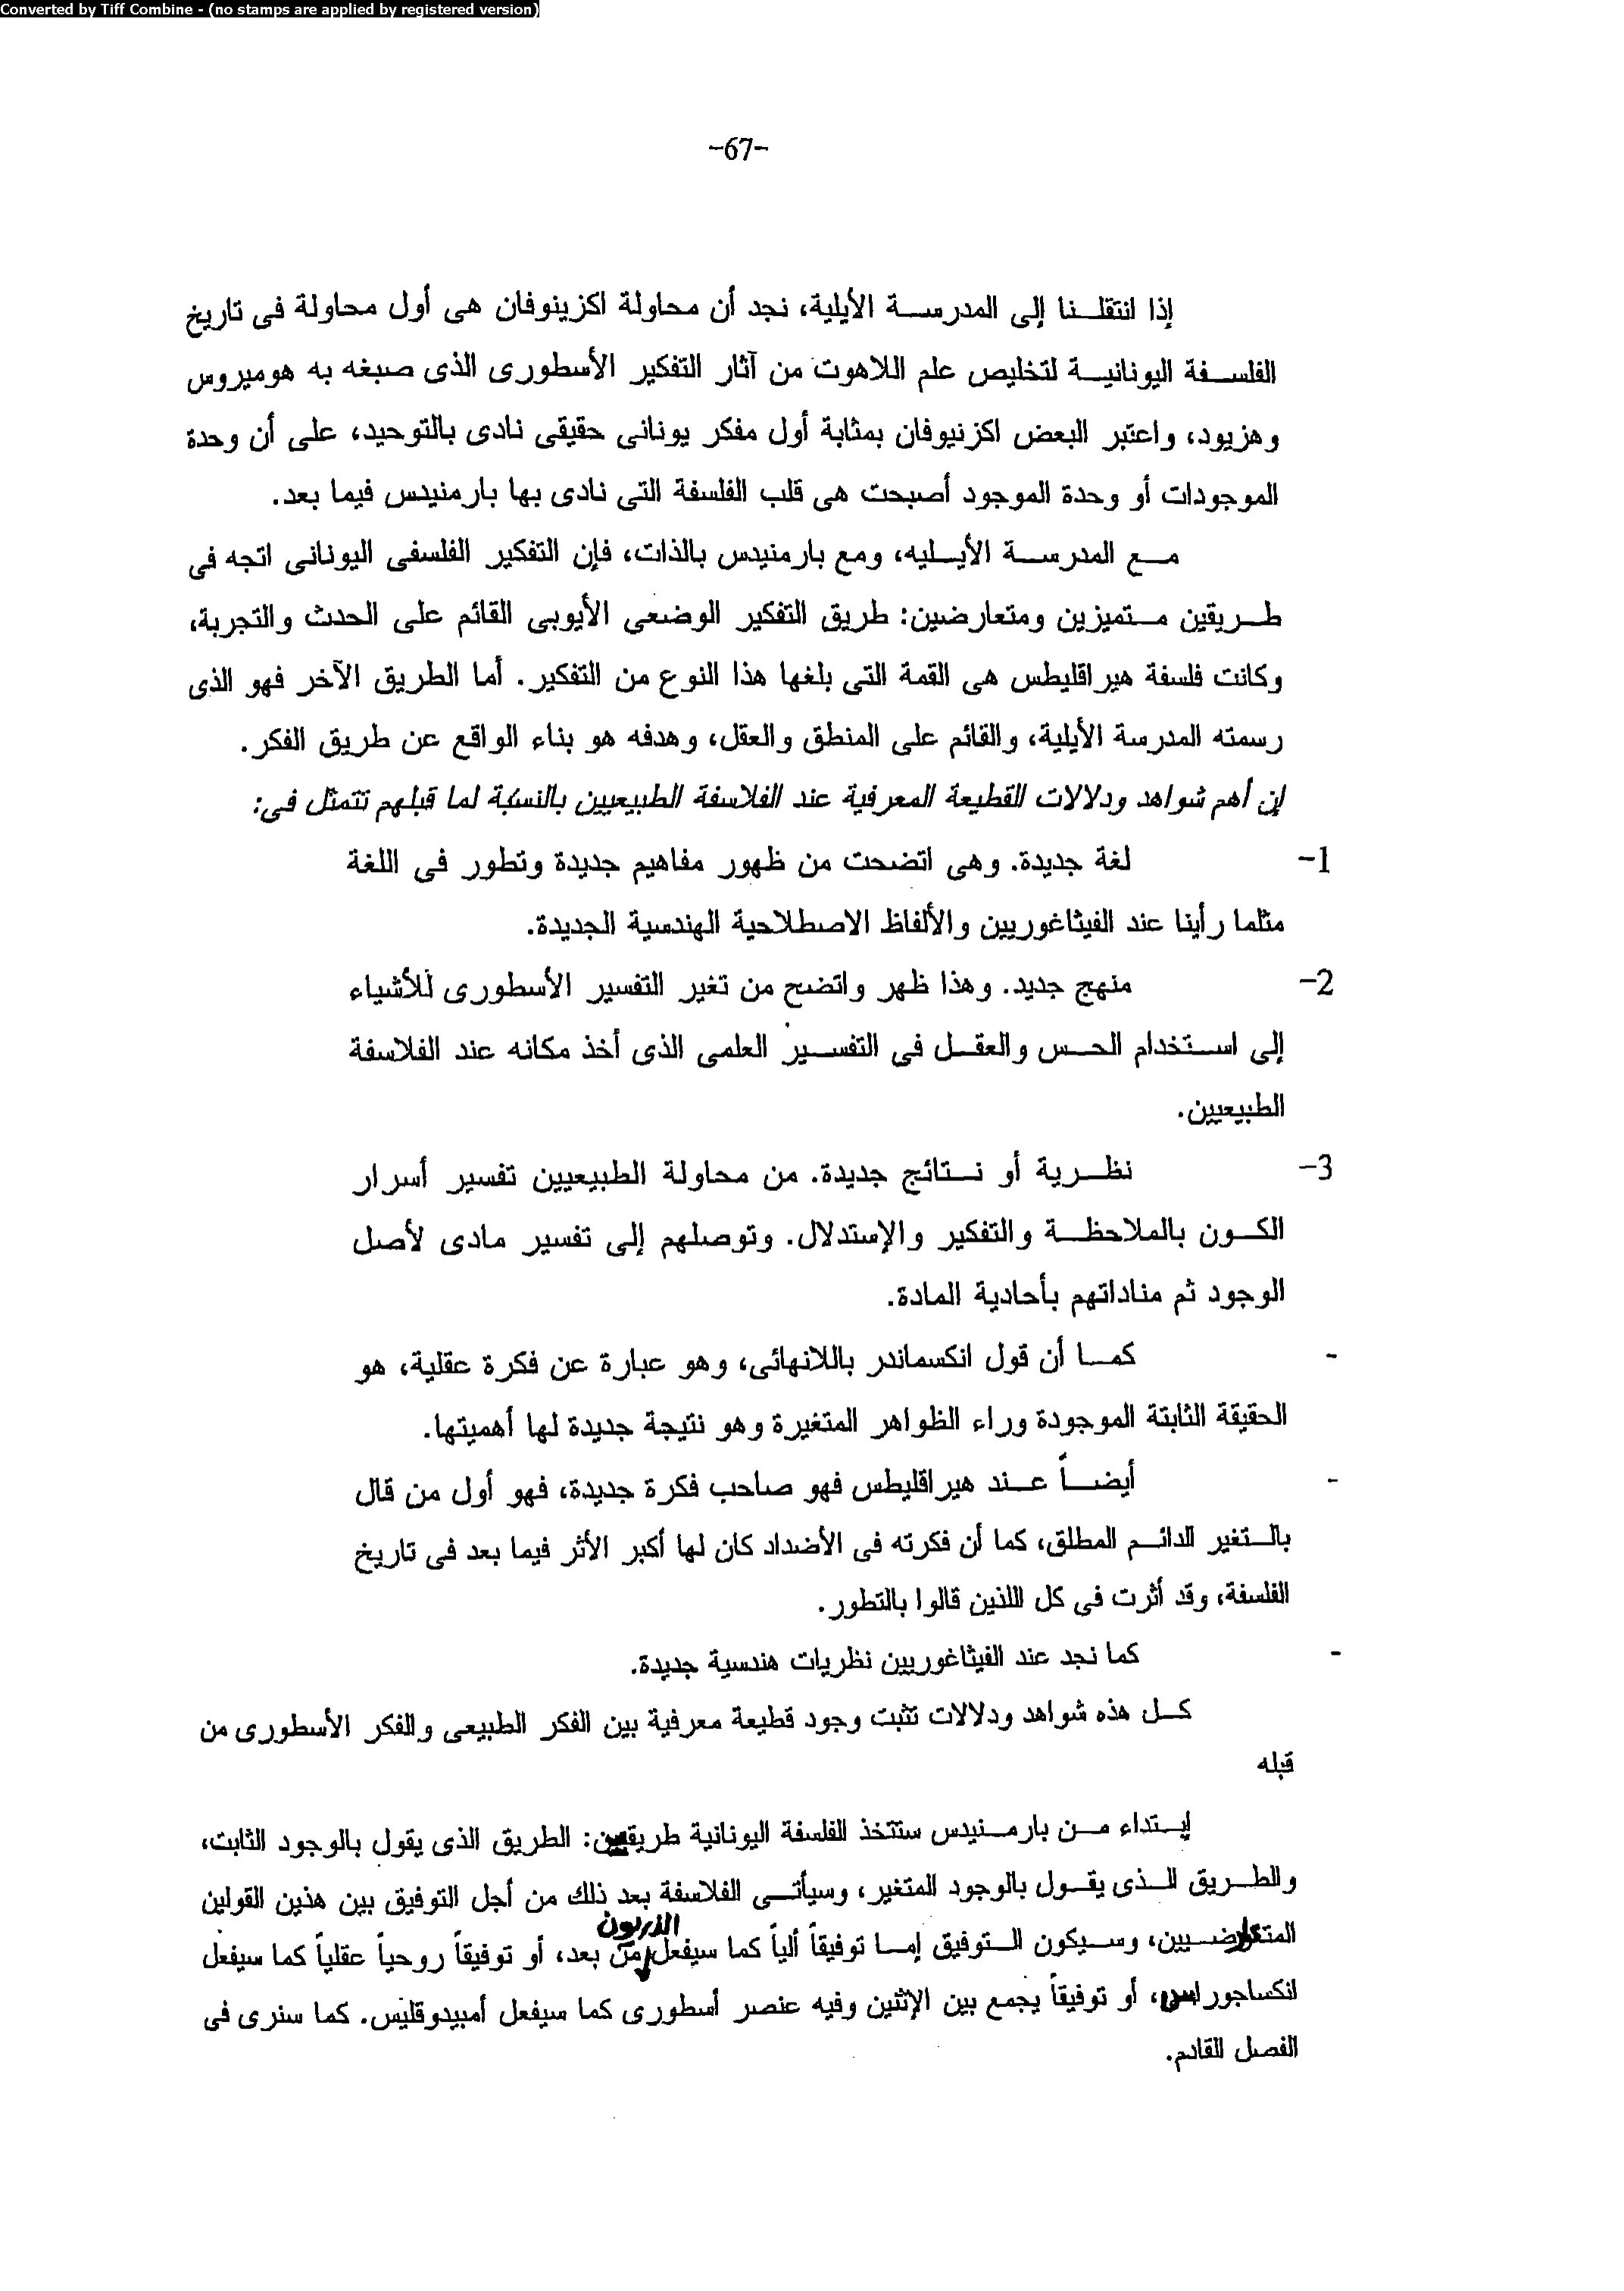 Converted by Tiff Combine - (no stamps are applied by registered version)
-67-
إذا انتقلنا إلى المدرسة الأيلية، نجد أن محاولة اكزينوفان هى أول محاولة فى تاريخ
الفلسفة اليونانية لتخليص علم اللاهوت من آثار التفكير الأسطورى الذى صبغه به هوميروس
وهزيود، واعتبر البعض اكزنيوفان بمثابة أول مفكر يونانى حقيقى نادى بالتوحيد، على أن وحدة
الموجودات أو وحدة الموجود أصبحت هى قلب الفلسفة التى نادى بها بارمنيدس فيما بعد.
مع المدرسة الأيليه، ومع بارمنيدس بالذات، فإن التفكير الفلسفى اليونانى اتجه فى
طريقين متميزين ومتعارضين: طريق التفكير الوضعى الأيوبى القائم على الحدث والتجربة،
وكانت فلسفة هيراقليطس هى القمة التى بلغها هذا النوع من التفكير. أما الطريق الآخر فهو الذى
رسمته المدرسة الأيلية، والقائم على المنطق والعقل، وهدفه هو بناء الواقع عن طريق الفكر.
إن أهم شواهد ودلالات القطيعة المعرفية عند الفلاسفة الطبيعيين بالنسبة لما قبلهم تتمثل فى:
1- لغة جديدة. وهى اتضحت من ظهور مفاهيم جديدة وتطور فى اللغة
مثلما رأينا عند الفيثاغوريين والألفاظ الاصطلاحية الهندسية الجديدة.
2- منهج جديد. وهذا ظهر واتضح من تغير التفسير الأسطورى للأشياء
إلى استخدام الحس والعقل فى التفسير العلمى الذى أخذ مكانه عند الفلاسفة
الطبيعيين.
3- نظرية أو نتائج جديدة. من محاولة الطبيعيين تفسير أسرار
الكون بالملاحظة والتفكير والإستدلال. وتوصلهم إلى تفسير مادى لأصل
الوجود ثم مناداتهم بأحادية المادة.
- كما أن قول انكسماندر باللانهائى، وهو عبارة عن فكرة عقلية، هو
الحقيقة الثابتة الموجودة وراء الظواهر المتغيرة وهو نتيجة جديدة لها أهميتها.
- أيضاً عند هيراقليطس فهو صاحب فكرة جديدة، فهو أول من قال
بالتغير الدائم المطلق، كما أن فكرته فى الأضداد كان لها أكبر الأثر فيما بعد فى تاريخ
الفلسفة، وقد أثرت فى كل اللذين قالوا بالتطور.
- كما نجد عند الفيثاغوريين نظريات هندسية جديدة.
كل هذه شواهد ودلالات تثبت وجود قطيعة معرفية بين الفكر الطبيعى والفكر الأسطورى من
قبله
إبتداء من بارمنيدس ستتخذ الفلسفة اليونانية طريقين: الطريق الذى يقول بالوجود الثابت،
والطريق الذى يقول بالوجود المتغير، وسيأتى الفلاسفة بعد ذلك من أجل التوفيق بين هذين القولين
المتعارضيين، وسيكون التوفيق إما توفيقاً ألياً كما سيفعل الذريون من بعد، أو توفيقاً روحياً عقلياً كما سيفعل
انكساجوراس، أو توفيقاً يجمع بين الإثنين وفيه عنصر أسطورى كما سيفعل أمبيدوقليس. كما سنرى فى
الفصل القادم.